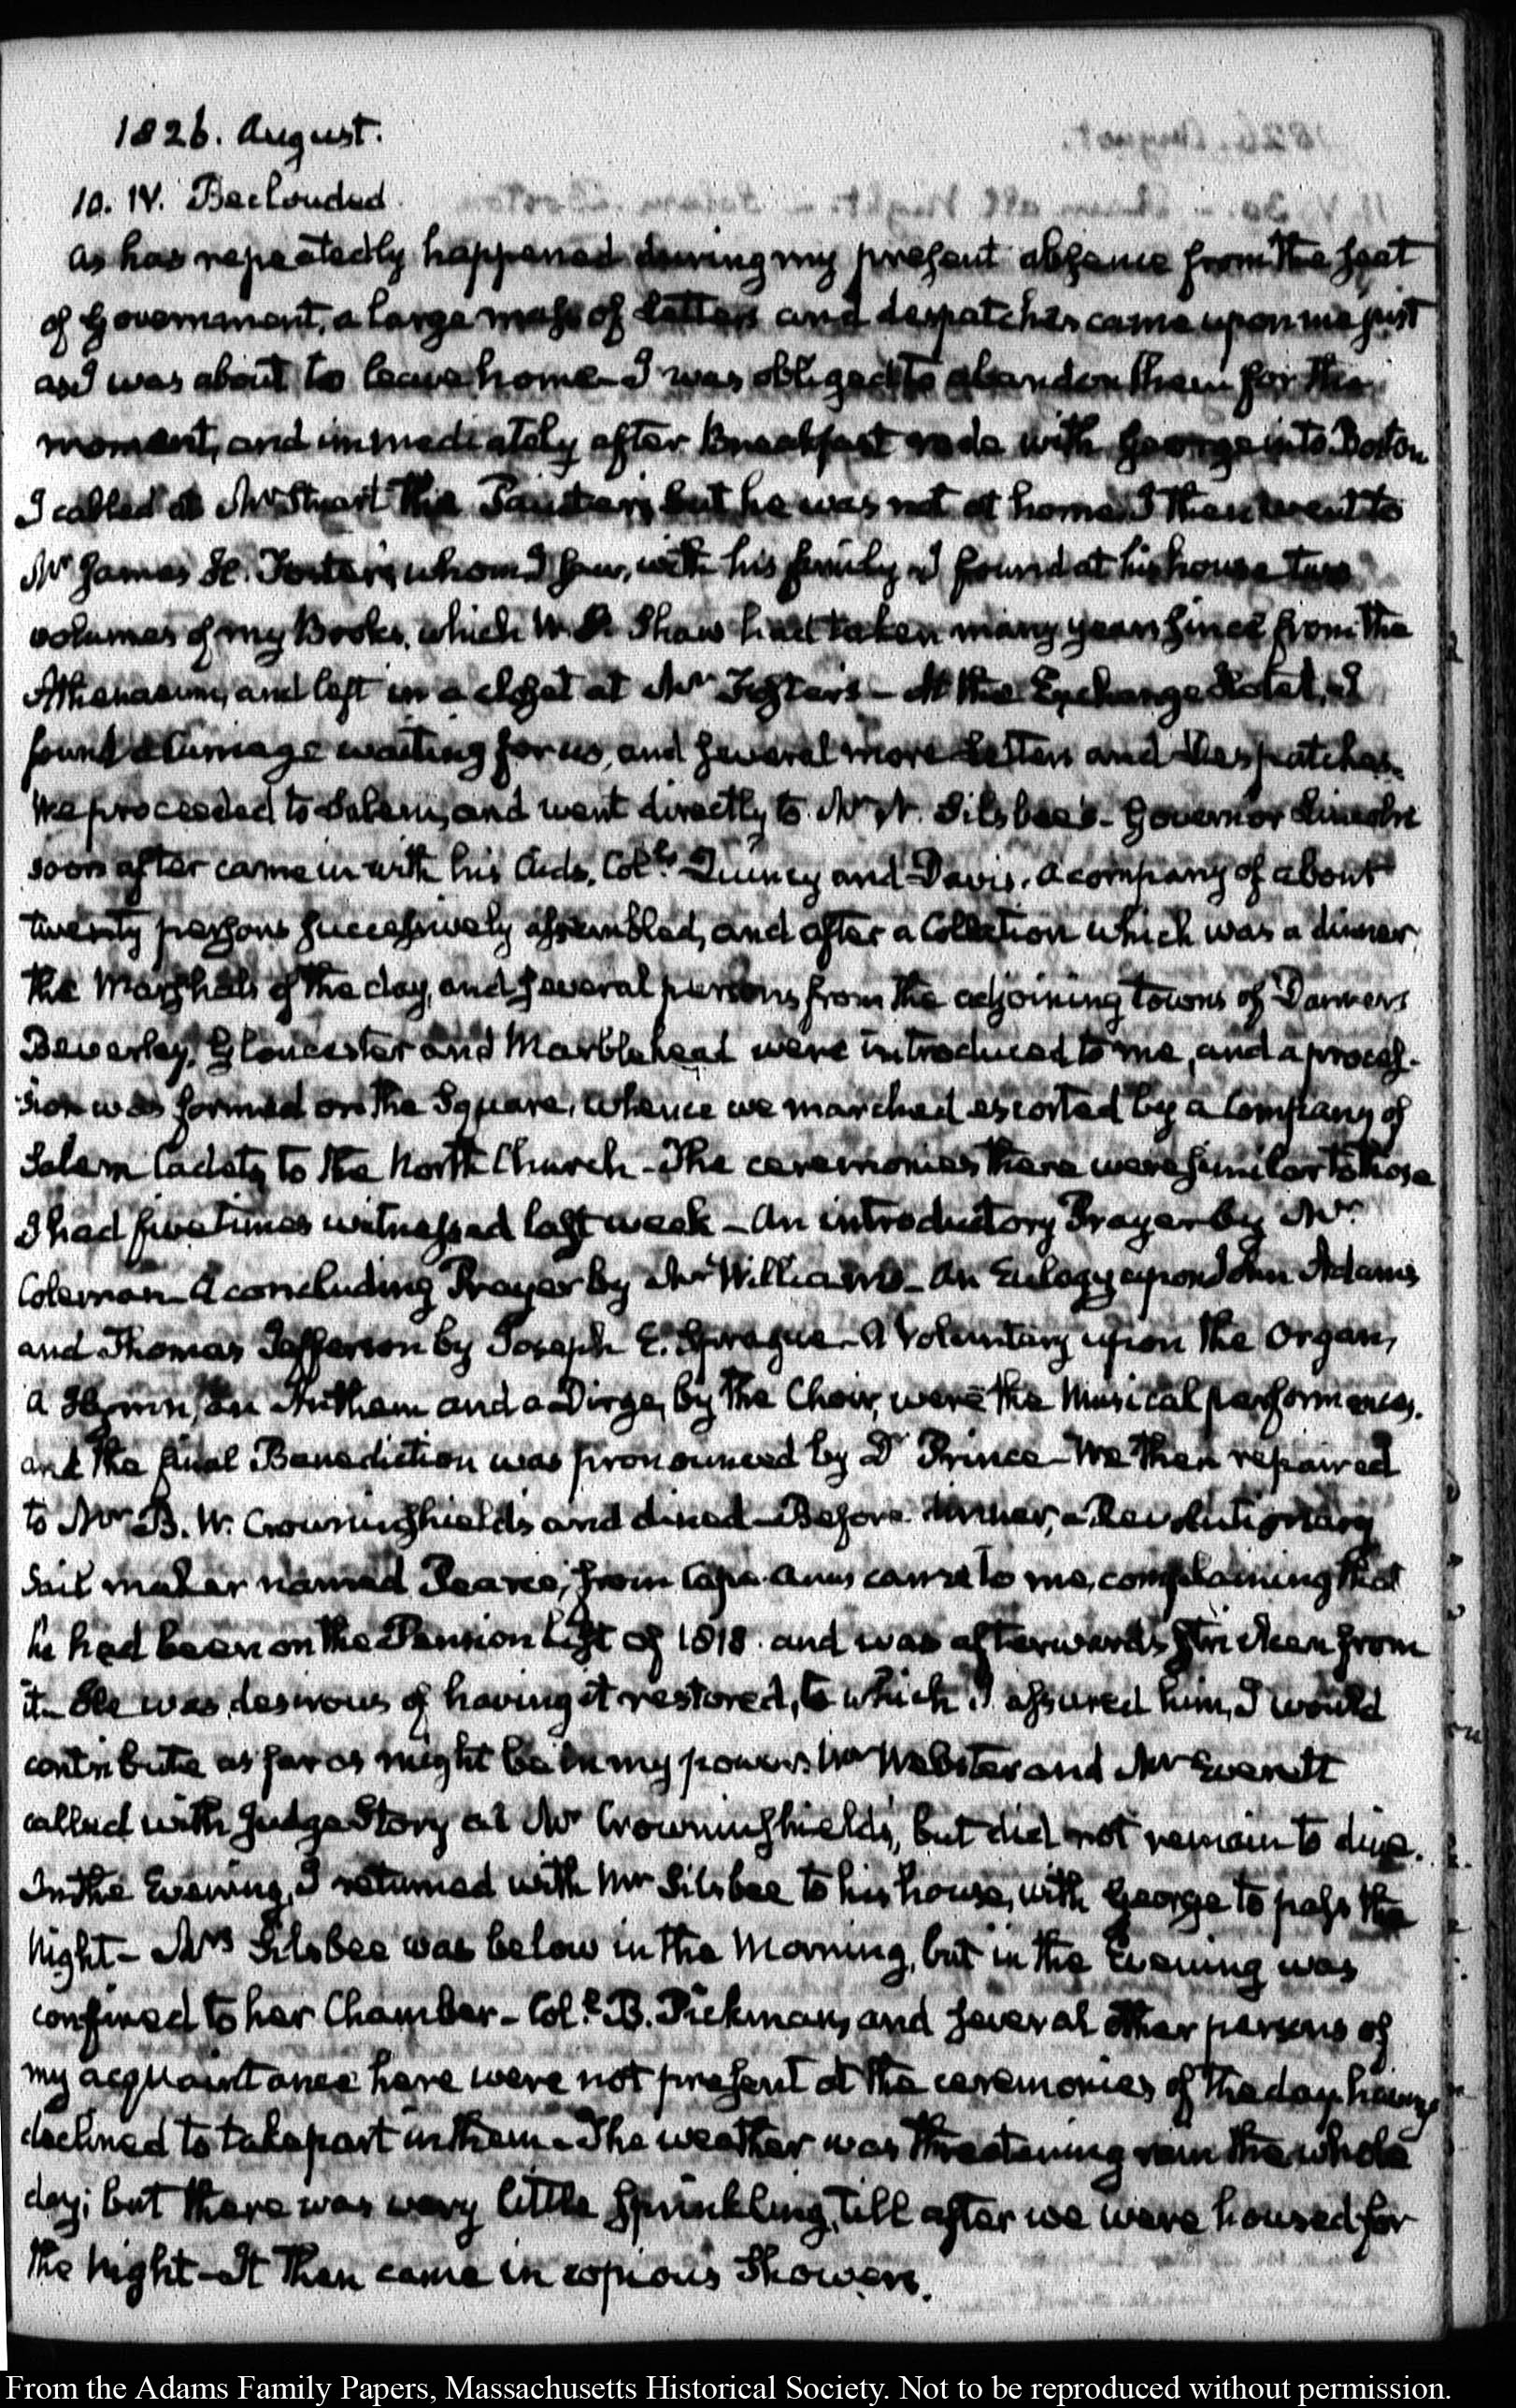 1826. August.
10. IV. Beclouded.
As has repeatedly happened during my present absence from the seat
of Government, a large mass of Letters and despatches came upon me just
as I was about to leave home. I was obliged to abandon them for the
moment, and immediately after Breakfast rode with George into Boston
I called at Mr Stuart the Painter's, but he was not at home. I then went to
Mr James H. Foster's, whom I saw, with his family. I found at his house two
volumes of my Books, which W. S. Shaw had taken many years since from the
Athenaeum, and left in a closet at Mr Foster's - At the Exchange Hotel, I
found a Carriage waiting for us, and several more Letters and Despatches.
We proceeded to Salem, and went directly to Mr N. Silsbee's - Governor Lincoln
soon after came in with his Aids, Cols. Quincy and Davis. A company of about
twenty persons successively assembled, and after a Collation which was a dinner
the Marshals of the day, and several persons from the adjoining towns of Danvers
Beverley, Gloucester and Marblehead were introduced to me, and a proces-
sion was formed on the Square, whence we marched escorted by a Company of
Salem Cadets, to the North Church - The ceremonies there were similar to those
I had five times witnessed last week - An introductory Prayer by Mr
Coleman - A concluding Prayer by Mr Williams - An Eulogy upon John Adams
and Thomas Jefferson by Joseph E. Sprague - A Voluntary upon the Organ,
a Hymn, an Anthem and a Dirge, by the Choir, were the Musical performances.
and the final Benediction was pronounced by Dr Prince - We then repaired
to Mr B. W. Crowninshield's and dined - Before dinner, a Revolutionary
Sail maker named Pearce, from Cape Ann came to me, complaining that
he had been on the Pension List of 1818. and was afterwards stricken from
it - He was desirous of having it restored, to which I assured him, I would
contribute as far as might be in my power. Mr Webster and Mr Everett
called with Judge Story at Mr Crowninshield's, but did not remain to dine.
In the Evening, I returned with Mr Silsbee to his house, with George to pass the
Night - Mrs Silsbee was below in the Morning, but in the Evening was
confined to her Chamber - Coll. B. Pickman, and several other persons of
my acquaintance here were not present at the ceremonies of the day, having
declined to take part in them - The weather was threatening rain the whole
day; but there was very little sprinkling, till after we were housed for
the Night - It then came in copious Showers.
From the Adams Family Papers, Massachusetts Historical Society. Not to be reproduced without permission.